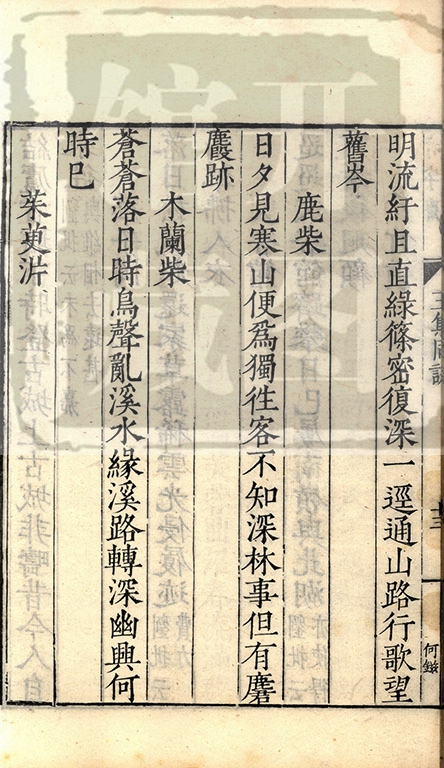 明流紆且直綠篠密復深一逕通山路行歌望
舊岑
鹿柴
日夕見寒山便爲獨徃客不知深林事但有麏
麚跡
木蘭柴
蒼蒼落日時鳥聲亂溪水緣溪路轉深幽興何
時已
茱萸沜
何鎡